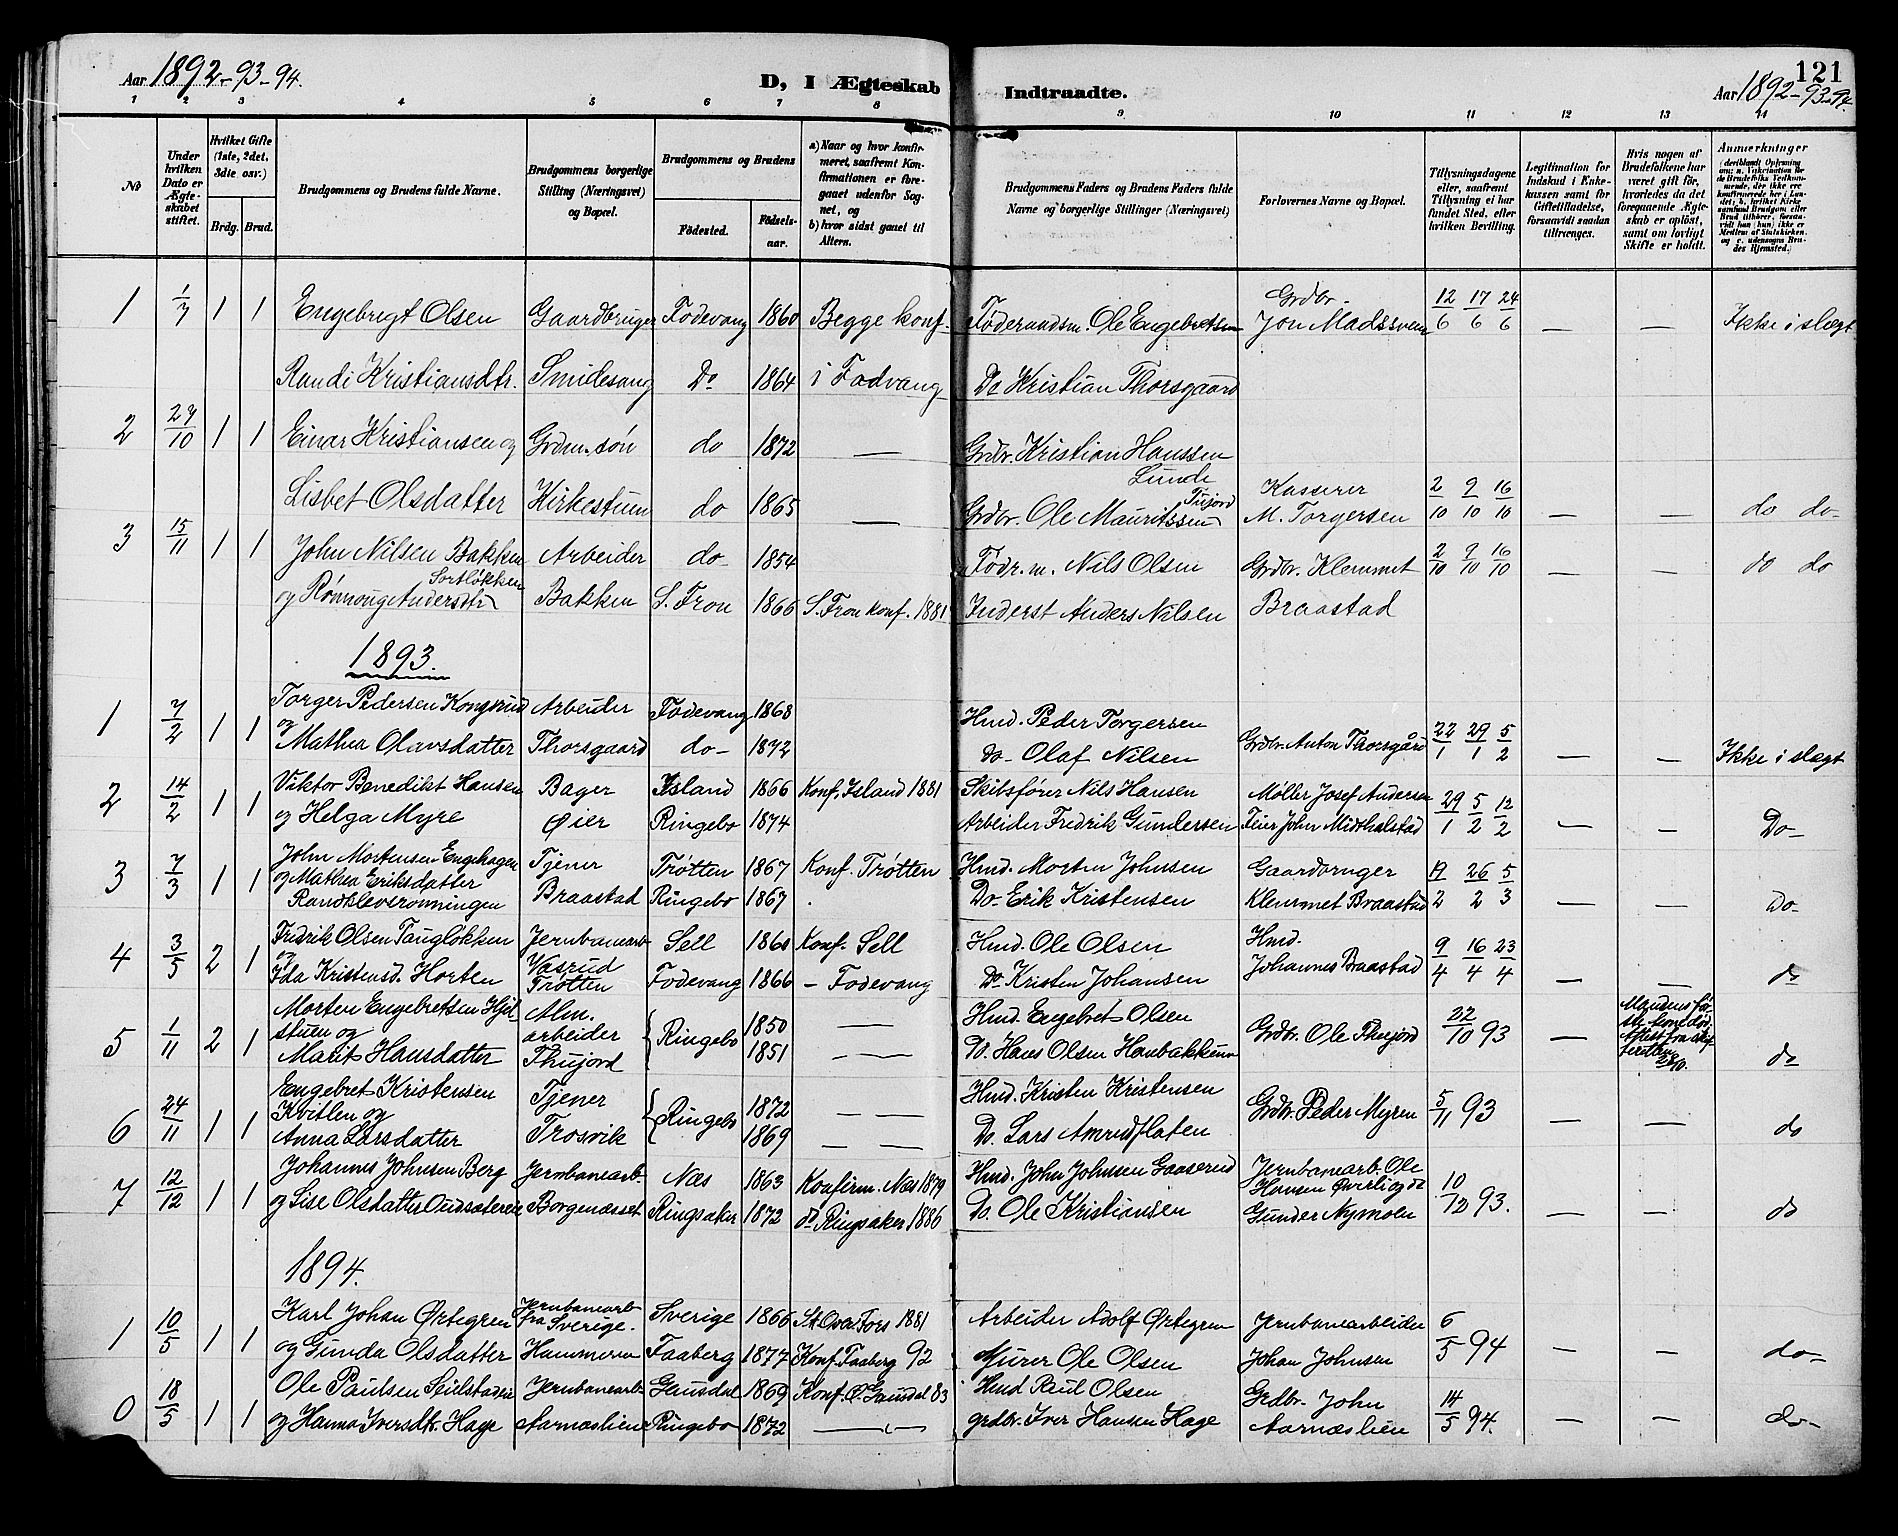 Aar 1892-93-94.
D, I Ægteskab Indtraadte.
121
Aar 1892-93-94.
1 2 3 4 5 6 7 8 9 10 11 12 13 14
No
Under hvilken Dato er Ægteskabet stiftet.
Hvilket Gifte (1ste, 2det, 3die osv.)
Brdg. Brud.
Brudgommens og Brudens fulde Navne.
Brudgommens borgerlige Stilling (Næringsvei) og Bopæl.
Brudgommens og Brudens
Fødested. Fødselsaar.
a) Naar og hvor konfirmeret, saafremt Konfirmationen er foregaaet udenfor Sognet, og
b) hvor sidst gaaet til Altern.
Brudgommens Faders og Brudens Faders fulde Navne og borgerlige Stillinger (Næringsvei)
Forlovernes Navne og Bopæl.
Tillysningsdagene eller, saafremt Tillysning ei har fundet Sted, efter hvilken Bevilling.
Legitimation for Indskud i Enkekassen samt for Giftetilladelse, forsaavidt saadan tiltrænges.
Hvis nogen af Brudefolkene har været gift før, hvorledes da det foregaaende Ægteskab er opløst, samt om lovligt Skifte er holdt.
Anmerkninger
1 1/7 1 1 Engebrigt Olsen Gaardbruger Fodevang 1860 Begge konf. Føderaadsm. Ole Engebretsen Grdbr. Jon Madssveen 12/6 17/6 24/6 — — Ikke i slegt
Randi Kristiansdtr. Smidesang Do 1864 i Fodvang Do Kristian Thorsgaard
2 29/10 1 1 Einar Kristiansen og Grdm. søn do 1872 — Grdbr. Kristian Hanssen Lunde
Lisbet Olsdatter Kirkestuen do 1865 — Grdbr. Ole Mauritssen Tujord Kasserer M. Torgersen 2/10 9/10 16/10 — — do do-
3 15/11 1 1 John Nilsen Bakken Arbeider do- 1854 Fødr. m. Nils Olsen Grdbr. Klemmet 2/10 9/10 16/10 — — do do
og Rønnoug Andersdtr Sortløkken Bakken S. Fron 1866 S. Fron konf. 1881 Inderst Anders Nilsen Braastad
1893.
1 7/2 1 1 Torger Pedersen Kongsrud Arbeider Fodevang 1868 Hmd. Peder Torgersen
og Mathea Olavsdatter Thorsgaard do- 1872 do- Olaf Nilsen Grdbr. Anton Thorsgård 22/1 29/1 5/2 — — Ikke i slegt
2 14/2 1 1 Viktor Benedikt Hansen Bager Island 1866 Konf. Island 1881 Skibsfører Nils Hansen Møller Josef Andersen 29/1 5/2 12/2
og Helga Myre Øier Ringebo 1874 Arbeider Fredrik Gundersen Feier John Midthalstad — — Do-
3 7/3 1 1 John Mortensen Engehagen Tjener Trøtten 1867 Konf. Trøtten Hmd. Morten Johnsen Gaardbruger 19/2 26/2 5/3
og Mathea Eriksdatter Randkleveronningen Braastad Ringebo 1867 Do- Erik Kristensen Klemmet Braastad — — Do-
4 3/5 2 1 Fredrik Olsen Tangløkken Jernbanearb Sell 1860 Konf. Sell Hmd. Ole Olsen Hmd. 9/4 16/4 23/4
og Ida Kristensd. Horten Vasrud Trøtten Fodevang 1866 - Fodevang Do Kristen Johansen Johannes Braastad — — do
5 1/11 2 1 Morten Engebretsen Hjelstuen og Alm. arbeider Ringebo 1850 — Hmd. Engebret Olsen Grdbr. Ole Thujord 22/10 93 —
Marit Hansdatter Thujord 1851 — Do. Hans Olsen Haubakken do
6 24/11 1 1 Engebret Kristensen Kvitlen og Tjener Ringebo 1872 — Hmd. Kristen Kristensen Grdbr. Peder Myren 5/11 93
Anna Larsdatter Trosvik 1869 — Do. Lars Amrudflaten — — do
7 12/12 1 1 Johannes Johnsen Berg Jernbanearb. Næs 1863 Konfirm. Næs 1879 Hmd. John Johnsen Gaaserud Jernbanearb. Ole Hansen Øverli og do 10/12 93.
og Lise Olsdatter Borgenæsset Ringsaker 1872 do Ringsaker 1886 Do. Ole Kristiansen Gunder Nymoen — — do
1894.
1 10/5 1 1 Karl Johan Ørtegren Jernbanearb fra Sverige. Sverige 1866 1881 Arbeider Adolf Ørtegren Jernbanearbeider 6/5 94
og Gunda Olsdatter Hammeren Faaberg 1877 Konf. Faaberg 92 Murer Ole Olsen Johan Johnsen — — do-
0 18/5 1 1 Ole Paulsen Seielstadeie Jernbanearb Gausdal 1869 Konf. Ø. Gausdal 83 Hmd Paul Olsen Grdbr. John 14/5 94.
og Hanna Iversdtr. Hage Aarnæslien Ringebo 1872 — grdbr. Iver Hansen Hage Aarnæslien — — do-